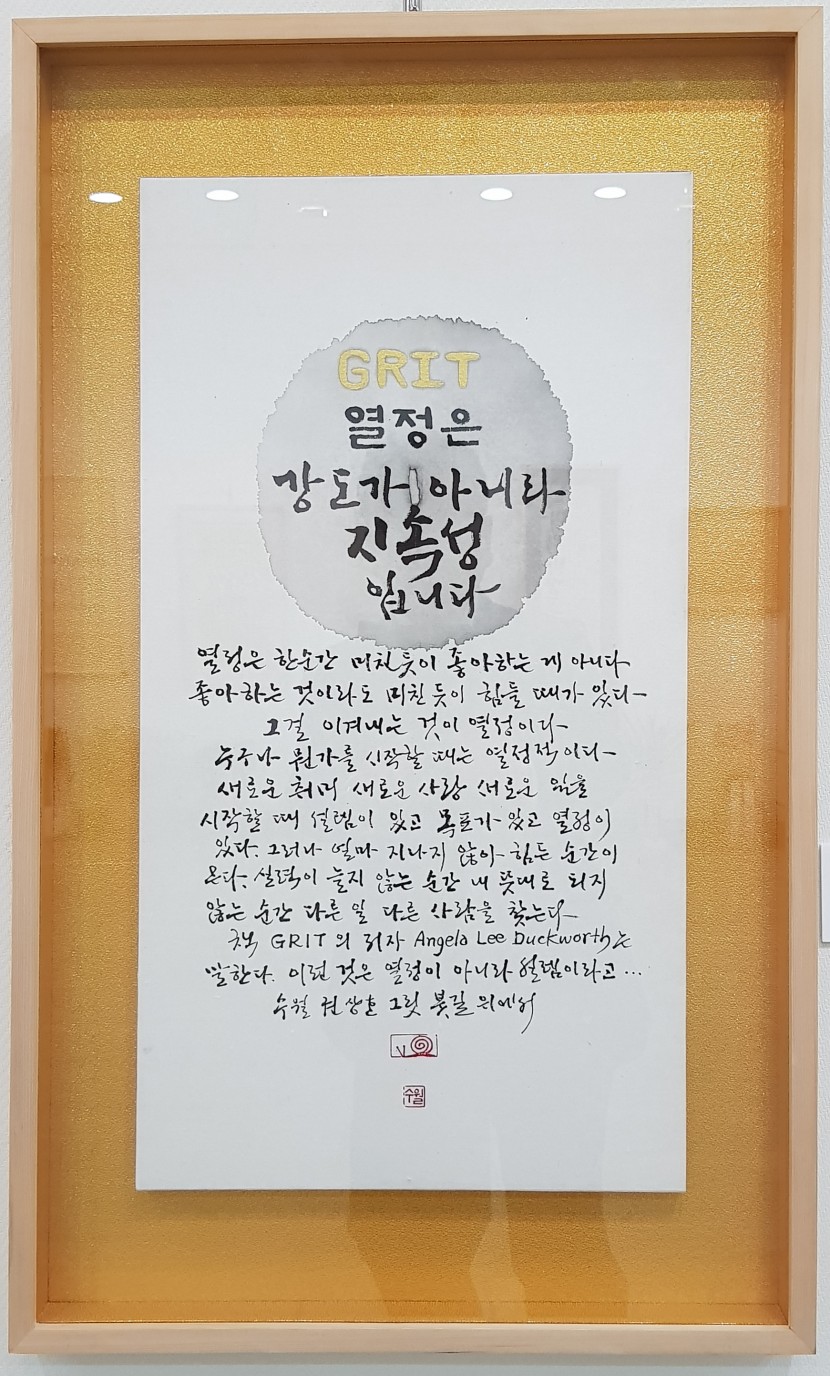 GRIT
열정은
강도가 아니라
지속성
입니다
열정은 한순간 미친듯이 좋아하는 게 아니다
좋아하는 것이라도 미친듯이 힘들 때가 있다
그걸 이겨내는 것이 열정이다
누구나 뭔가를 시작할 때는 열정적이다
새로운 취미 새로운 사랑 새로운 일을
시작할 때 설렘이 있고 목표가 있고 열정이
있다. 그러나 얼마 지나지 않아 힘든 순간이
온다. 실력이 늘지 않는 순간 내 뜻대로 되지
않는 순간 다른 일 다른 사람을 찾는다
책 GRIT의 저자 Angela Lee Duckworth는
말한다. 이런 것은 열정이 아니라 설렘이라고...
수월 권상호 그릿 붓길 위에서
수월